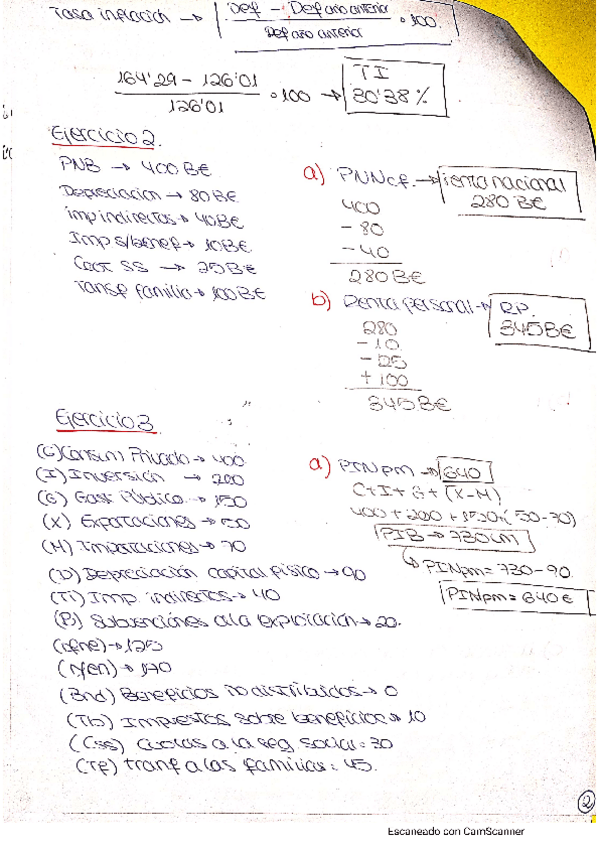 Tasa inflación → Def - Def año anterior / Def año anterior · 100
164'29 - 126'01 / 126'01 · 100 → TI 30'38 %
Ejercicio 2
PNB → 400 B€
Depreciacion → 80 B€
imp indirectos → 40 B€
Imp s/benef → 10 B€
Coot SS → 25 B€
Transf familia → 100 B€
a) PNNcf. → renta nacional 280 B€
400
- 80
- 40
280 B€
b) Renta personal → RP. 345 B€
280
- 10
- 25
+ 100
345 B€
Ejercicio 3
(C) Consum Privado → 400
(I) Inversión → 200
(G) Gast Público → 150
(X) Exportaciones → 50
(M) Importaciones → 70
(D) Depreciación capital físico → 90
(Ti) Imp. indirectos → 40
(Pi) Subvenciones a la explotación → 20.
(rfne) → 125
(rfen) → 170
(Bnd) Beneficios no distribuidos → 0
(Tb) Impuestos sobre beneficios → 10
(Css) Cuotas a la seg social = 30
(Tf) tranf a las familias = 45.
a) PINpm → 640
C + I + G + (X - M)
400 + 200 + 150 + (50 - 70)
PIB → 730
PINpm = 730 - 90
PINpm = 640 €
2
Escaneado con CamScanner